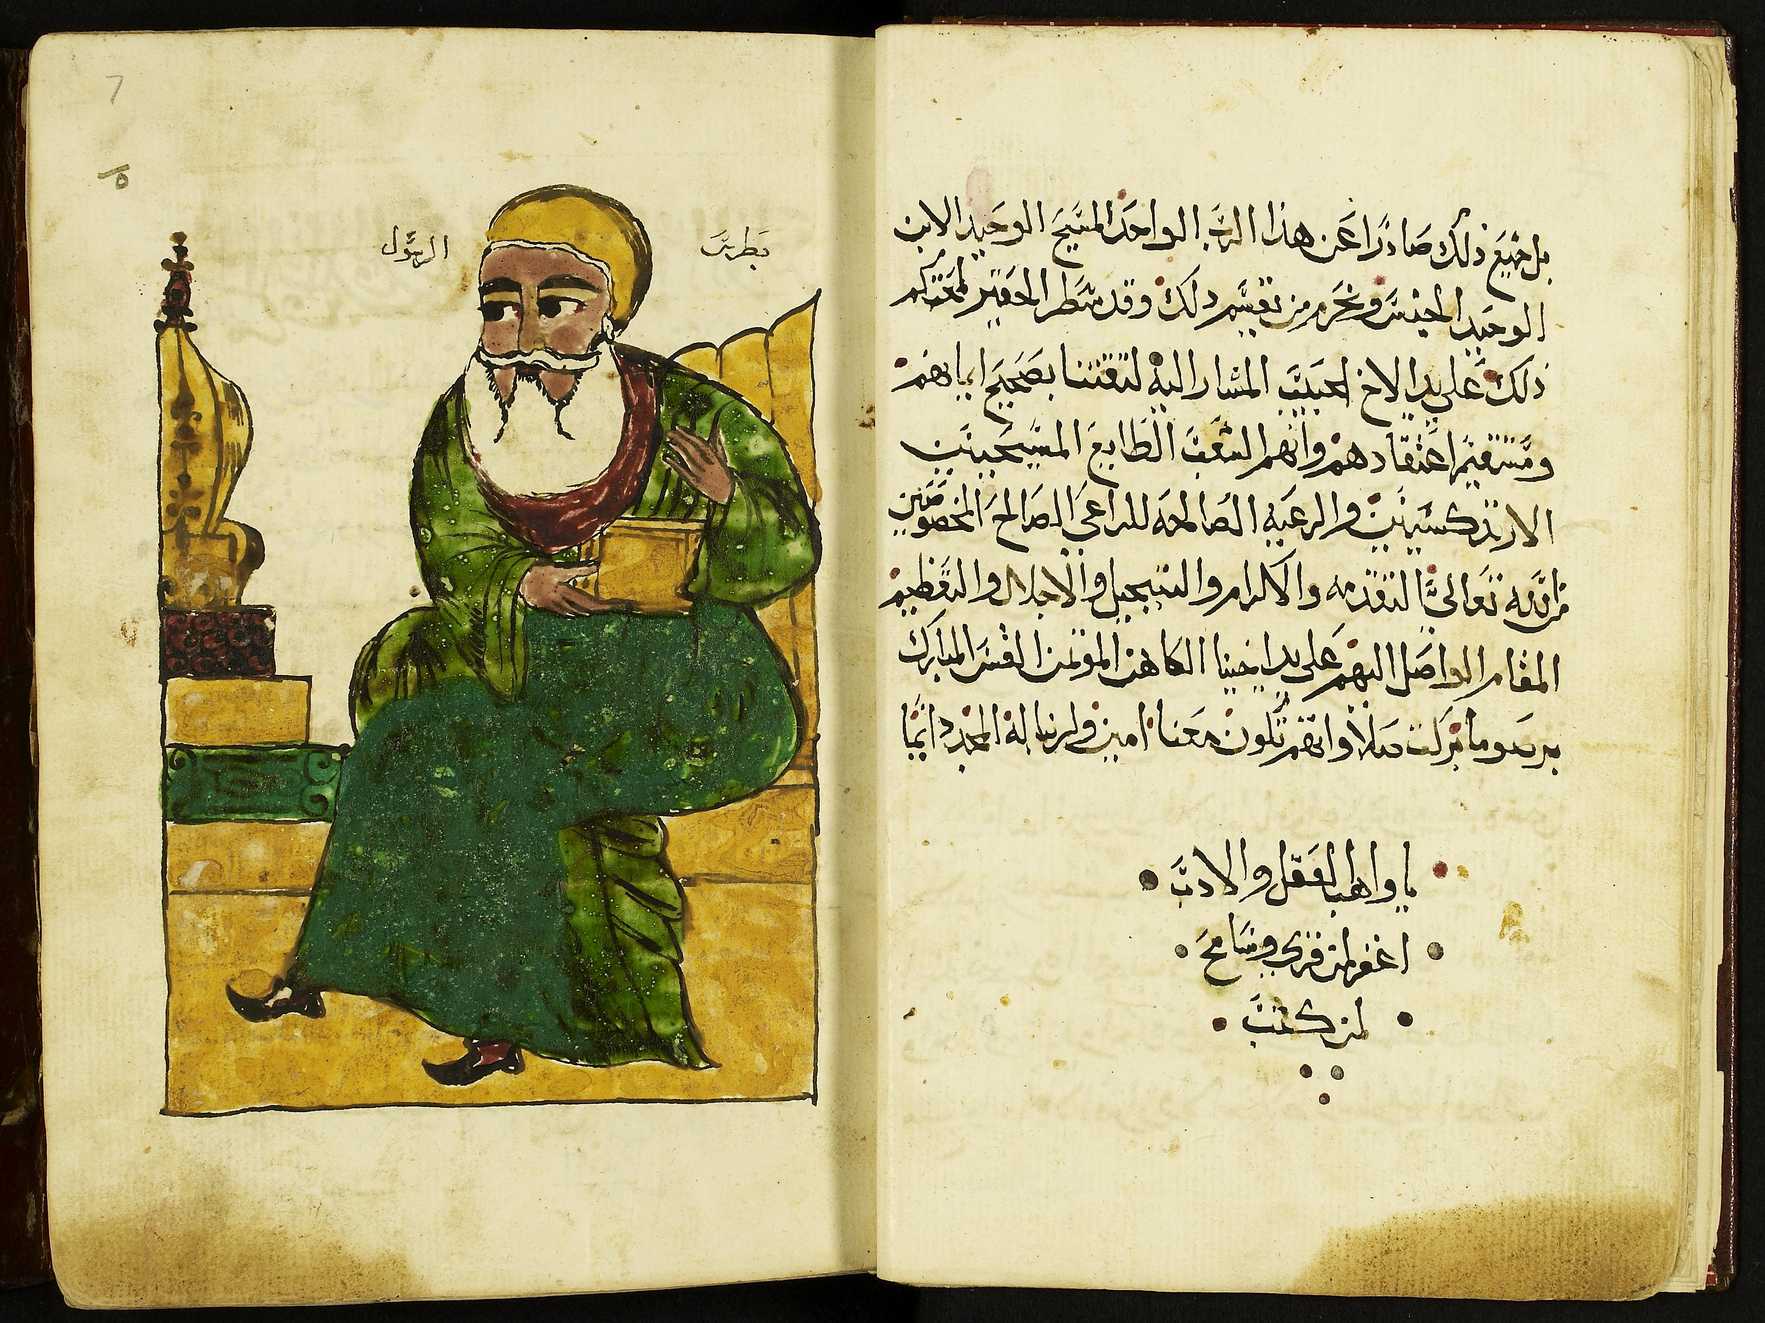 بل جميع ذلك صادرًا عن هذا الرب الواحد المسيح الوحيد الابن
الوحيد الجنس ونحرم من يقسم ذلك وقد سطر الحقير لمحبتكم
ذلك على يد الاخ الحبيب المشار اليه لثقتنا بصحيح ايمانهم
ومستقيم اعتقادهم وانهم الشعب الطايع المسيحيين
الارتدكسيين والرعيه الصالحه للراعي الصالح المخصوصين
من الله تعالى التقدمه والاكرام والتبجيل والاجلال والتعظيم
المقام الواصل اليهم على يد اخينا الكاهن الموتمن القس المبارك
برسوما بركت صلاواتهم تكون معنا امين ولربنا له المجد دائما
يا واهب العقل والادب
اغفر لمن قرى وسامح
لمن كتب
بطرس الرسول
7
٥